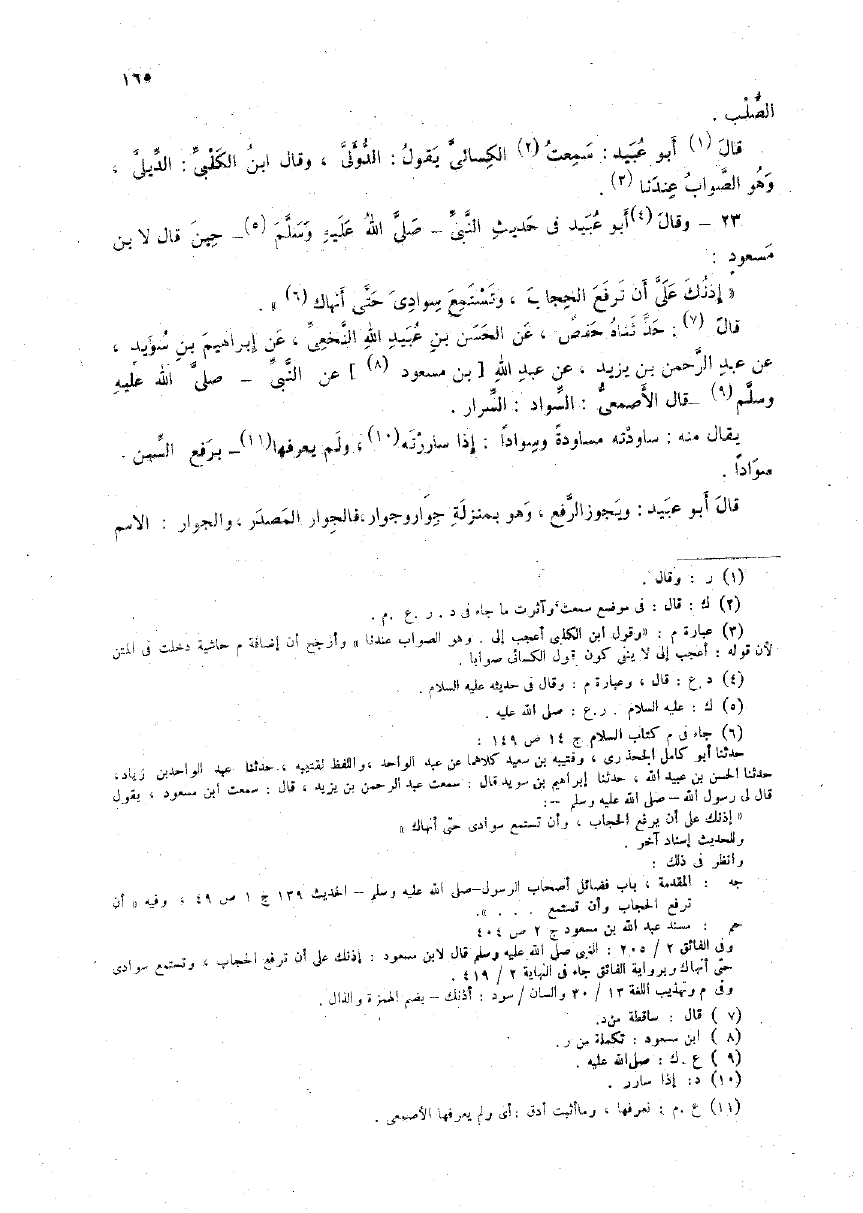 ١٦٥
الصُّلْب .
قالَ (١) أَبو عُبَيد : سَمِعتُ (٢) الكِسائىَّ يَقولُ : الدُّؤَلىَّ ، وقال ابنُ الكَلْبىِّ : الدِّيلىَّ ،
وَهُو الصَّوابُ عِندَنا (٣) .
٢٣ – وقالَ (٤) أَبو عُبَيد فى حَديثِ النَّبىِّ – صَلىَّ اللهُ عَلَيهِ وَسَلَّمَ (٥) – حِينَ قال لابن
مَسعودٍ :
« إِذنُكَ عَلَىَّ أَن تَرفَعَ الحِجابَ ، وتَسْتَمِعَ سِوادِىَ حَتَّى أَنهاك (٦) » .
قالَ (٧) : حَدَّثَناهُ حَفصٌ ، عَن الحَسَن بنِ عُبَيدِ اللهِ النَّخعِىِّ ، عَن إِبراهيمَ بنِ سُوَيدٍ ،
عن عبدِ الرَّحمن بن يزيد ، عن عبدِ اللهِ [ بن مسعود (٨) ] عن النَّبىِّ – صلىَّ الله عليهِ
وسلَّم (٩) – قال الأَصمعىُّ : السِّواد : السِّرار .
يقال منه : ساودْته مساودةً وسِواداً : إِذا ساررْتَه (١٠) ، ولَم يعرفها (١١) – برَفع السِّين –
سُوَاداً .
قالَ أَبو عبَيد : ويَجوز الرَّفع ، وَهو بمنزلَةِ جِوَار وجوار ، فالجِوار المَصدَر ، والجوار : الاسم
(١) ر : وقال .
(٢) ك : قال : فى موضع سمعت ، وآثرت ما جاء فى د . ر . ع . م .
(٣) عبارة م : « وقول ابن الكلبى أعجب إلى . وهو الصواب عندنا » وأرجح أن إضافة م حاشية دخلت فى المتن
لأن قوله : أعجب إلى لا ينفى كون قول الكسائى صوابا .
(٤) د . ع : قال ، وعبارة م : وقال فى حديثه عليه السلام .
(٥) ك : عليه السلام . ر . ع : صلى الله عليه .
(٦) جاء فى م كتاب السلام ج ١٤ ص ١٤٩ :
حدثنا أبو كامل الجحدرى ، وقتيبه بن سعيد كلاهما عن عبد الواحد ، واللفظ لقتيبه ، حدثنا عبد الواحد بن زياد ،
حدثنا الحسن بن عبيد الله ، حدثنا إبراهيم بن سويد قال : سمعت عبد الرحمن بن يزيد ، قال : سمعت ابن مسعود ، يقول
قال لى رسول الله – صلى الله عليه وسلم – :
« إذنك على أن يرفع الحجاب ، وأن تستمع سوادى حتى أنهاك »
وللحديث إسناد آخر .
وانظر فى ذلك :
جه : المقدمة ، باب فضائل أصحاب الرسول – صلى الله عليه وسلم – الحديث ١٣٩ ج ١ ص ٤٩ ، وفيه « أن
ترفع الحجاب وأن تستمع . . . » .
حم : مسند عبد الله بن مسعود ج ٢ ص ٤٠٤
وفى الفائق ٢ / ٢٠٥ : النبى صلى الله عليه وسلم قال لابن مسعود : إذنك على أن ترفع الحجاب ، وتستمع سوادى
حتى أنهاك وبرواية الفائق جاء فى النهاية ٢ / ٤١٩ .
وفى م وتهذيب اللغة ١٣ / ٣٠ واللسان / سود : أذنك – بضم الهمزة والذال .
(٧) قال : ساقطة من د .
(٨) ابن مسعود : تكملة من ر .
(٩) ع . ك : صلى الله عليه .
(١٠) د : إذا سارر .
(١١) ع . م : نعرفها ، وما أثبت أدق : أى ولم يعرفها الأصمعى .